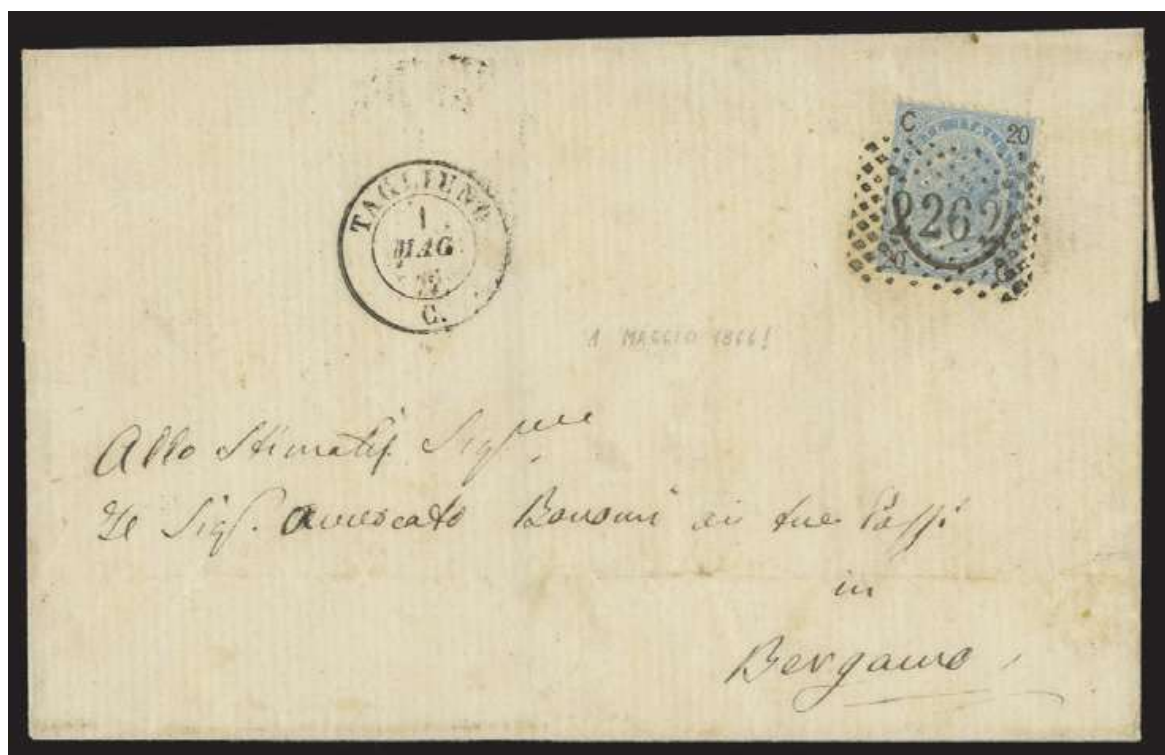 TAGLIUNO
1
MAG
C.
C 20
2262
20 C
1 MAGGIO 1866!
Allo Stimatis.
Il Sig. Avvocato Bonomi ai tre Passi
in
Bergamo